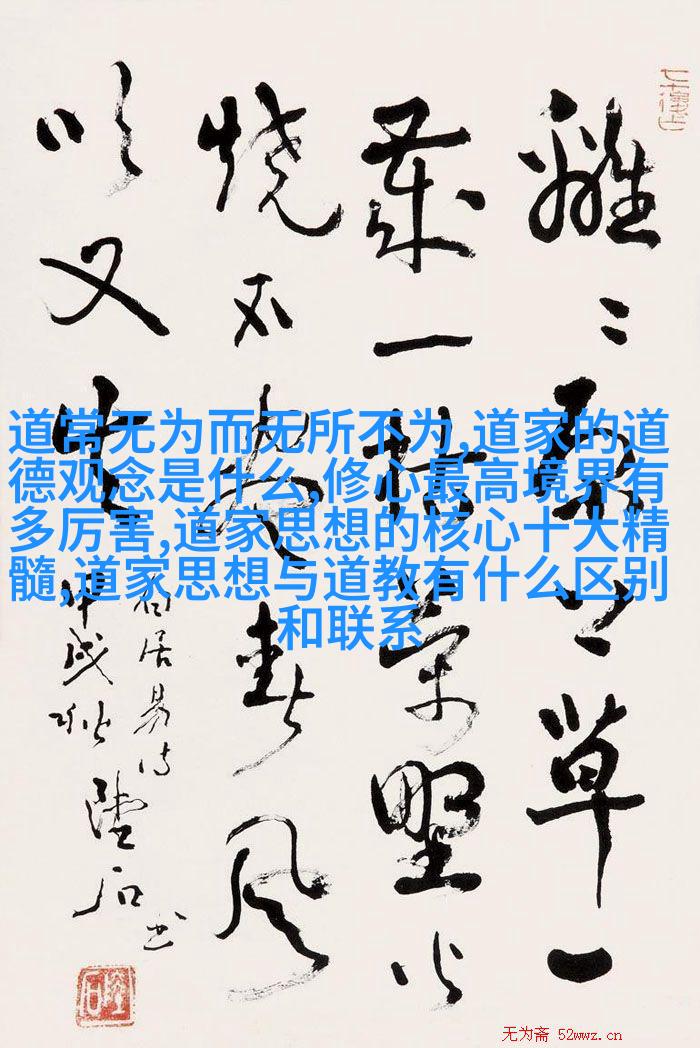 離〻原上草一
歲一枯榮野火
烧不盡春風
吹又生
白居易诗
甲戌秋 陸石书
道常无为而无所不为,道家的道
德观念是什么,修心最高境界有
多厉害,道家思想的核心十大精
髓,道家思想与道教有什么区别
和联系
无为斋 52wwz.cn